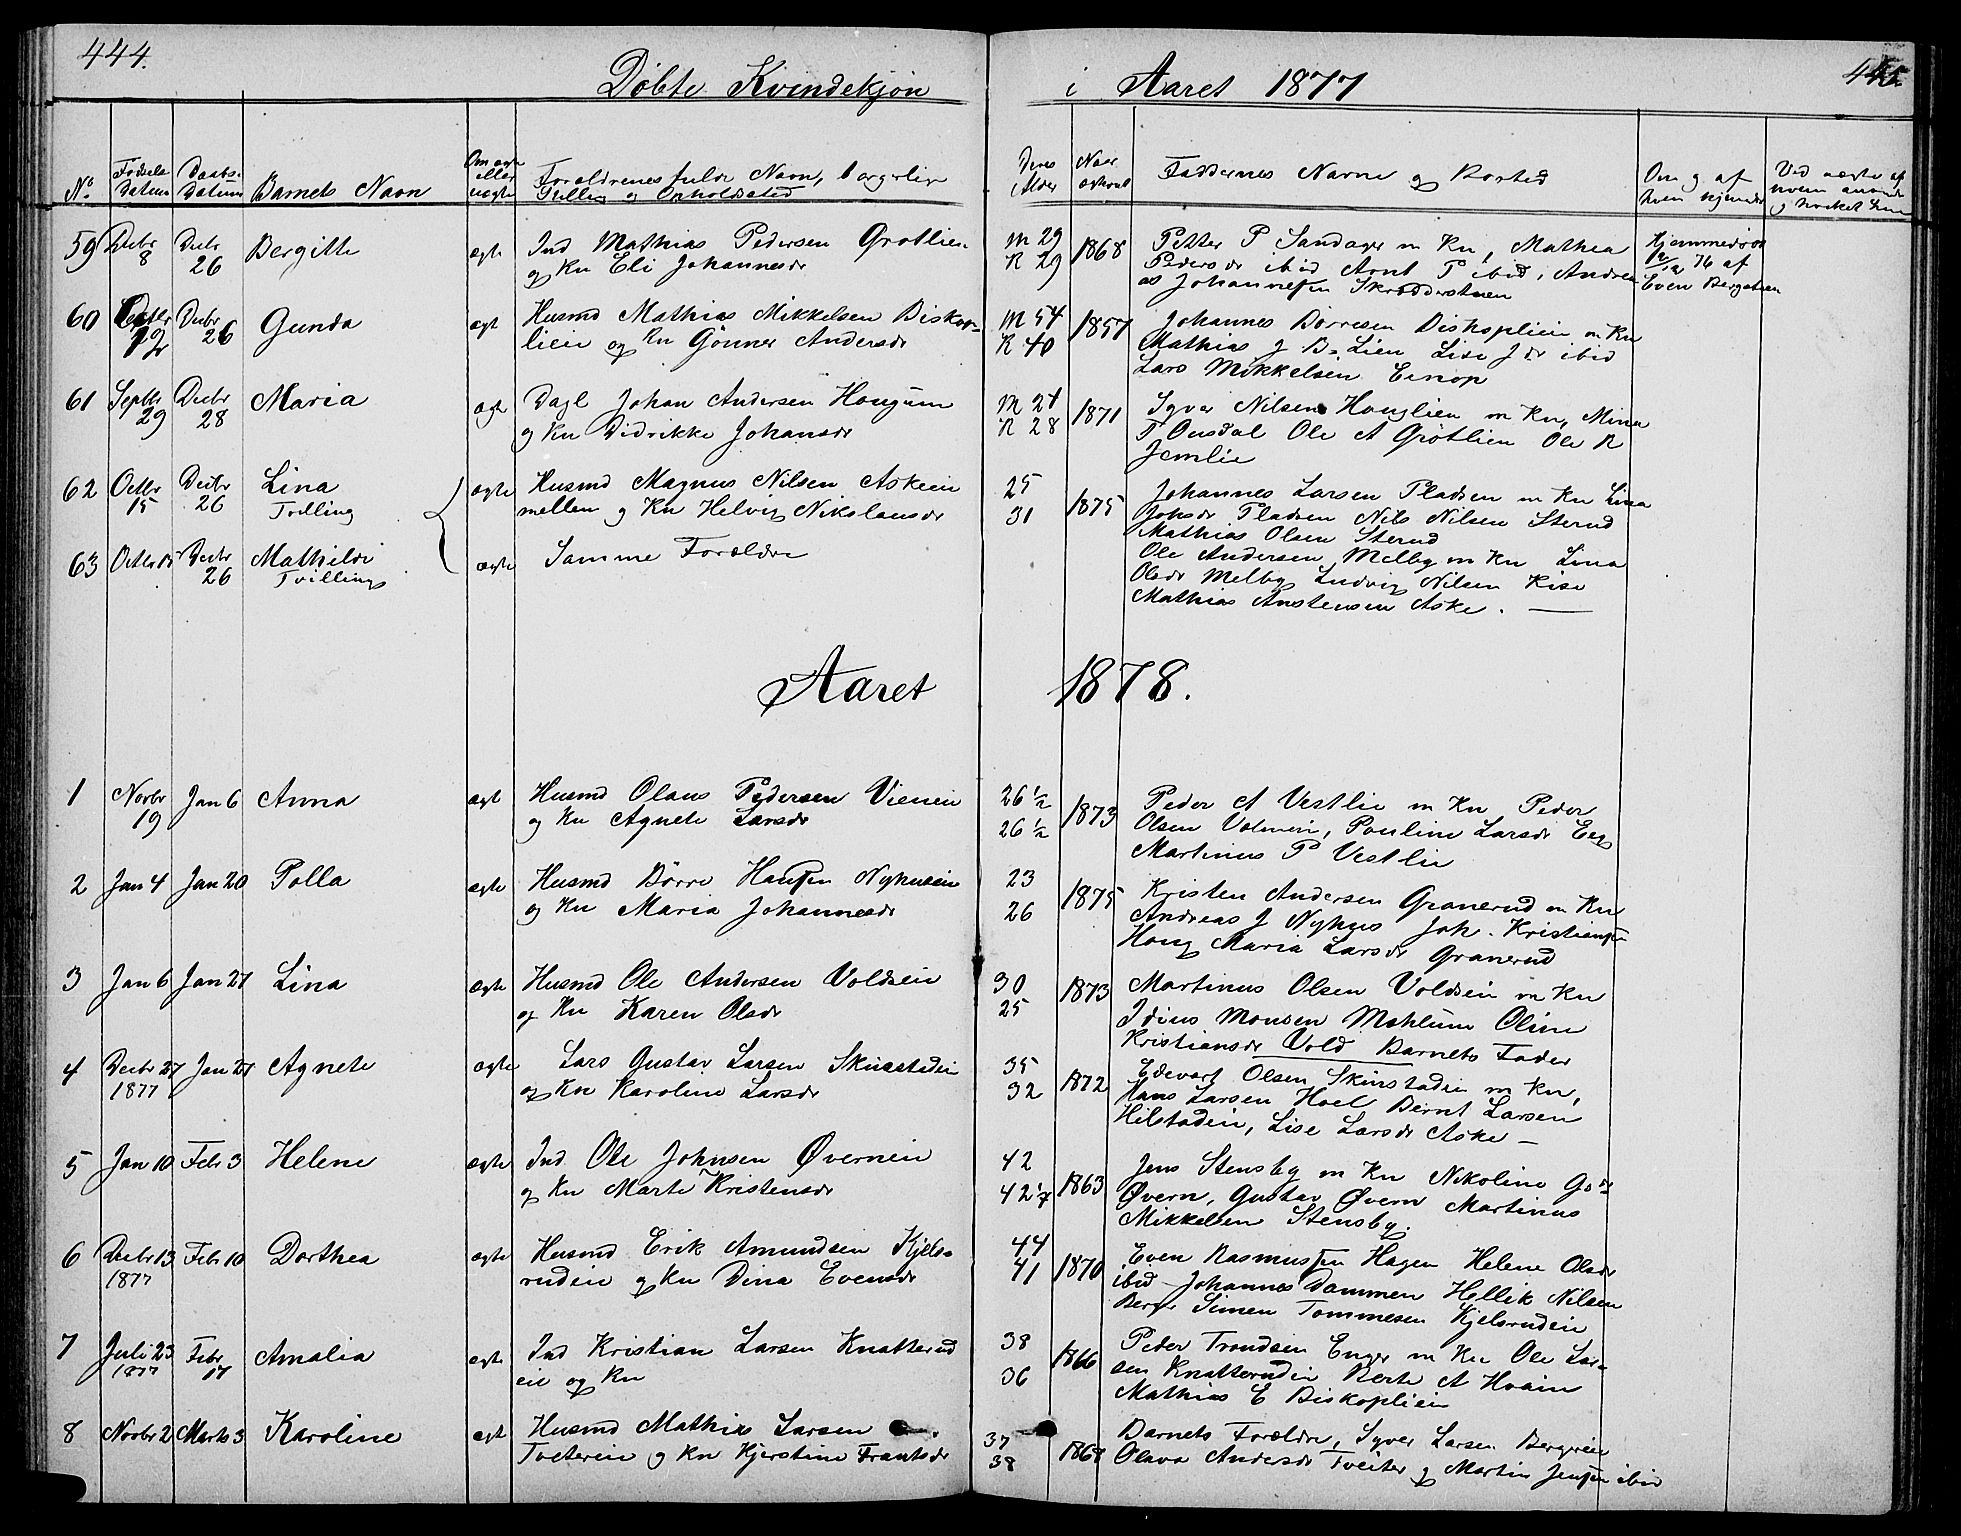 444.
Döbte Kvindekjön i Aaret 1877
445
No Födsels Datum Daabs Datum Barnets Navn Om ægte eller uægte Forældrenes fulde Navn, borgerlige Stilling og Opholdssted
Deres Alder Naar Faddernes Navne og Bosted Om og af hvem hjemmed Ved uægte af hvem
59 Decbr 8 Decbr 26 Bergitte ægte Ind Mathias Pedersen Grötlien
og Kn Eli Johannesdr
M 29 K 29 1868 Petter P Sandager m Kn, Mathea
Pedersdr ibid Arnt P ibid, Andre
as Johannesen Skrædderstuen
Hjemmedöbt
76 af
Even Bergstuen
60 12 Decbr 26 Gunda ægt Husmd Mathias Mikkelsen Biskop-
lien og Kn Gönner Andersdr
M 54 K 40 1857 Johannes Börresen Biskoplien m Kn
Mathias J B=Lien Lise J dr ibid
Lars Mikkelsen
61 Septbr 29 Decbr 28 Maria ægte Dagl Johan Andersen Hougum
og Kn Didrikke Johansdr
M 24 K 28 1871 Syver Nilsen Houglien m Kn, Mina
T Onsdal Ole A Grötlien Ole R
Jemlie
62 Octbr 15 Decbr 26 Lina Tvilling ægte Husmd Magnus Nilsen Askeie
mellem og Kn Helvig Nikolausdr
25 31 1875 Johannes Larsen Pladsen m Kn Lina
Johsdr Pladsen Nils Nilsen Sterud
Mathias Olsen Sterud
63 Octbr 15 Decbr 26 Mathilde Tvilling ægte Samme Forældre
Ole Andersen Melby m Kn Lina
Olsdr Melby Ludvig Nilsen Kise
Mathias Anstensen Aske. —
Aaret 1878.
1 Novbr 19 Jan 6 Anna ægt Husmd Olaus Pedersen Vieneie
og Kn Agnete Larsdr
26 1/2 26 1/2 1873 Peder A Vestlie m Kn Peder
Olsen, Pauline Larsdr Eeg
Martinus P Vestlie
2 Jan 4 Jan 20 Polla ægte Husmd Börre Hansen Nyhuseie
og Kn Maria Johannesdr
23 26 1875 Kristen Andersen Granerud m Kn
Andreas J Nyhus Joh. Kristiansen
Houg Maria Larsdr Granerud
3 Jan 6 Jan 27 Lina ægte Husmd Ole Andersen Voldseie
og Kn Karen Olsdr
30 25 1873 Martinus Olsen Voldseie m Kn
Idius Monsen Mæhlum Oline
Kristiansdr Vold Barnets Fader
4 Decbr 27 1877 Jan 27 Agnete ægte Lars Gustav Larsen Skinstadeie
og Kn Karoline Larsdr
35 32 1872 Edevart Olsen Skinstadeie m Kn,
Hans Larsen Hoel Bernt Larsen
Hilstadeie, Lise Larsdr Aske —
5 Jan 10 Febr 3 Helene ægte Ind Ole Johnsen Överneie
og Kn Marte Kristensdr
42 42 1/4 1863 Jens Stensby m Kn Nikoline
Övern, Gustav Övern Martinus
Mikkelsen Stensby.
6 Decbr 13 1877 Febr 10 Dorthea ægte Husmd Erik Amundsen Kjels-
rudeie og Kn Dina Evensdr
44 41 1870 Even Rasmussen Hagen Helene Olsdr
ibid Johannes Dammen Hellik Nilsen
Simen Tommesen Kjelsrudeie
7 Juli 23 1877 Febr 17 Amalia ægte Ind Kristian Larsen Knatterud
eie og Kn
38 36 1866 Peder Trondsen Enger m Kn Ole Lar-
sen Knatterudeie Berte A
Mathias E Biskoplien
8 Novbr 2 Marts 3 Karoline ægt Husmd Mathias Larsen
Tveitereie og Kn Kjerstine Frantsdr
37 38 1868 Barnets Forældre, Syver Larsen
Olava Andersdr Tveiter og Martin Jensen ibid